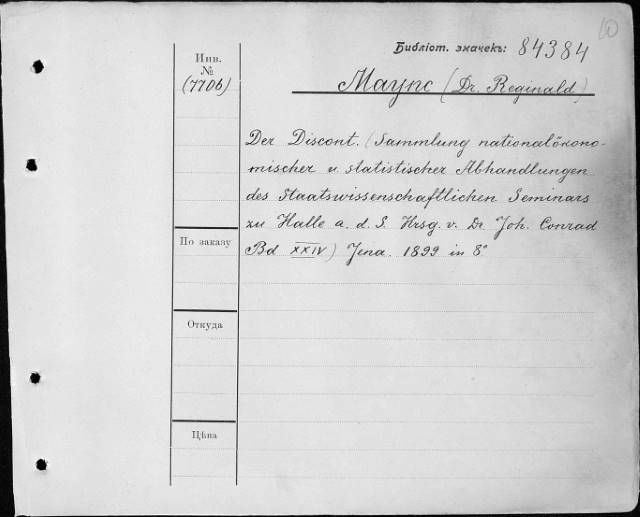 Ю
Библіот. значекъ: 84384
Инв.
№
(7706)
Mayne (Dr. Reginald)
Der Discont. (Sammlung nationalökono-
mischer u. statistischer Abhandlungen
des Staatswissenschaftlichen Seminars
zu Halle a. d. S. Hrsg. v. Dr Joh. Conrad
Bd XXIV) Jena. 1899 in 8°
По заказу
Откуда
Цѣна